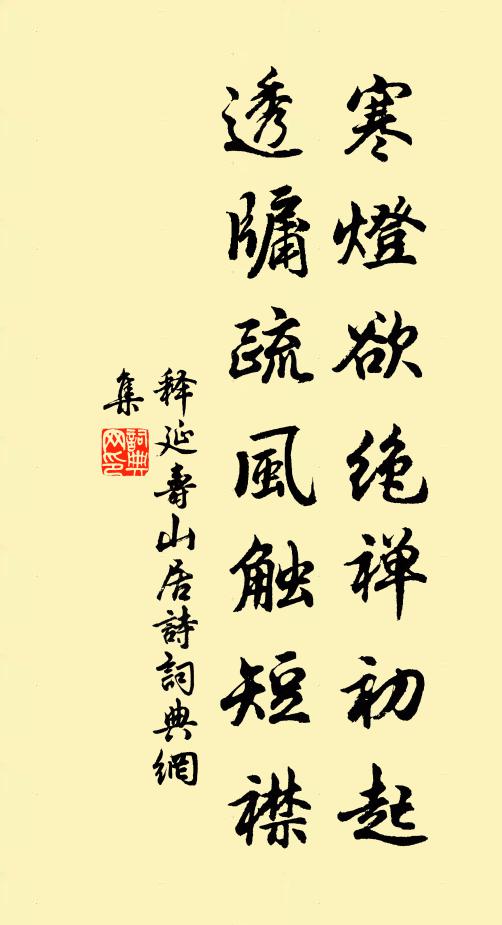 寒燈欲绝禅初起
透牖疏風触短襟
释延壽山居詩詞典網
集
詞典
网印